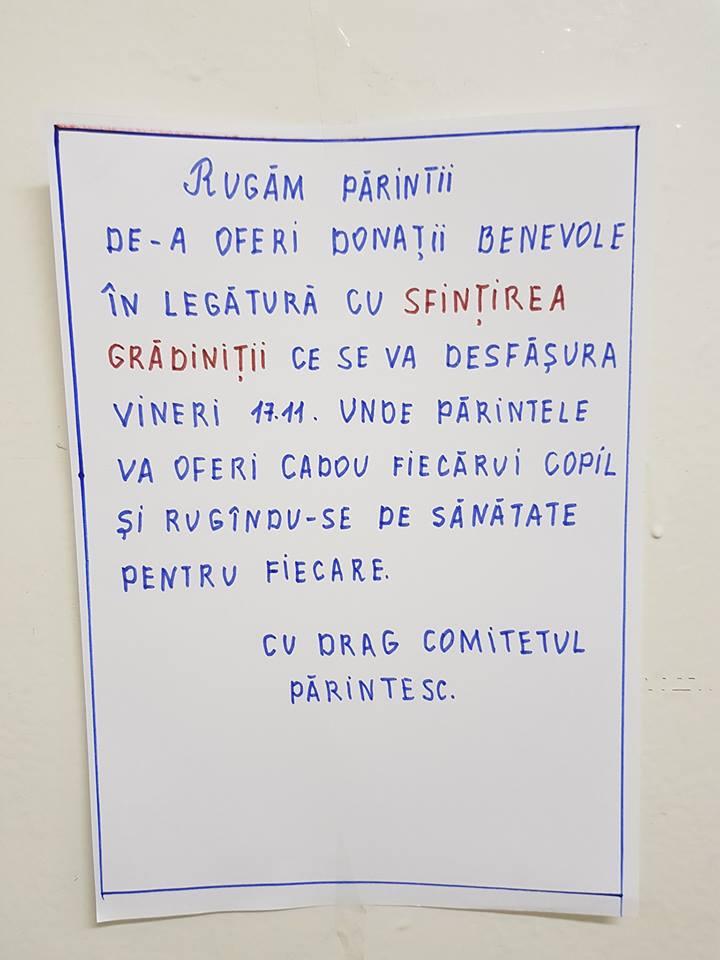 RUGĂM PĂRINȚII
DE-A OFERI DONAȚII BENEVOLE
ÎN LEGĂTURĂ CU SFINȚIREA
GRĂDINIȚII CE SE VA DESFĂȘURA
VINERI 17.11. UNDE PĂRINTELE
VA OFERI CADOU FIECĂRUI COPIL
ȘI RUGÎNDU-SE DE SĂNĂTATE
PENTRU FIECARE.
CU DRAG COMITETUL
PĂRINTESC.